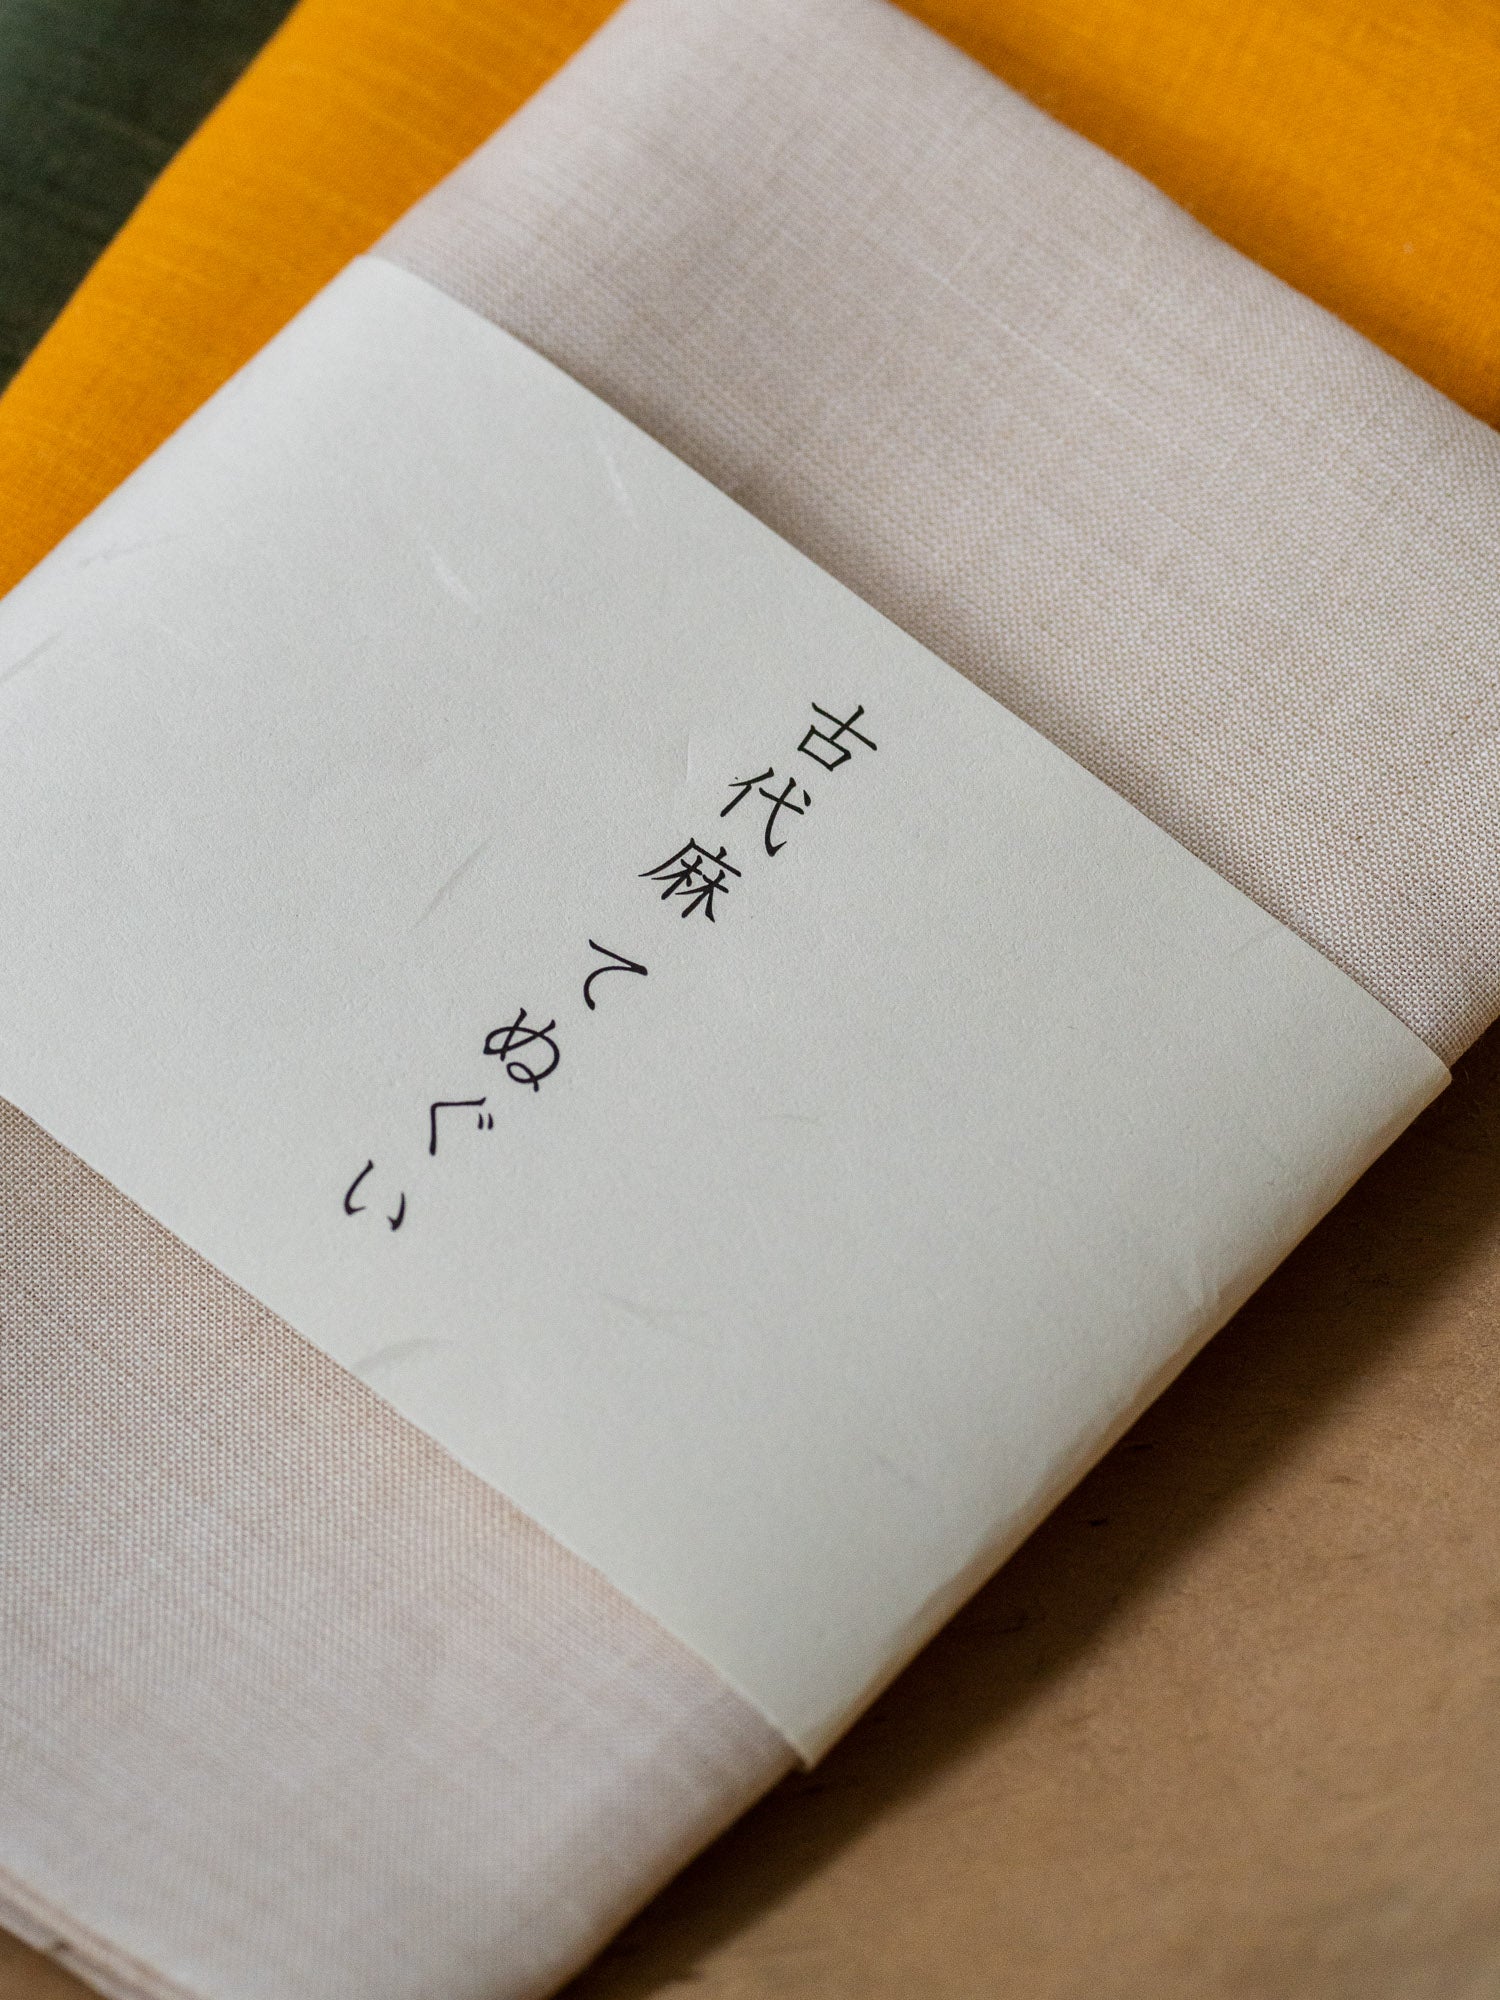 古代麻てぬぐい